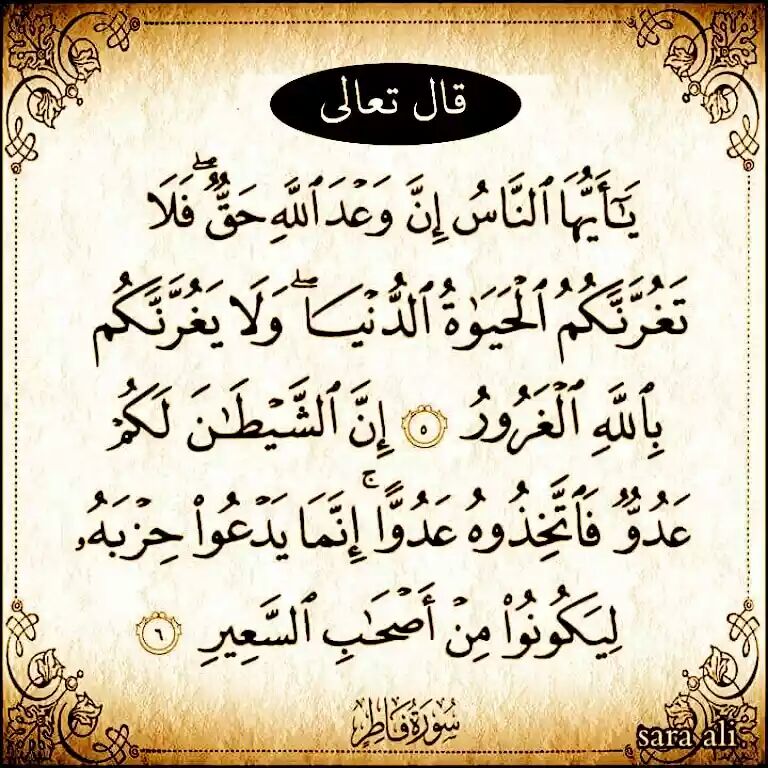 قال تعالى
يَـٰٓأَيُّهَا ٱلنَّاسُ إِنَّ وَعْدَ ٱللَّهِ حَقٌّ ۖ فَلَا
تَغُرَّنَّكُمُ ٱلْحَيَوٰةُ ٱلدُّنْيَا ۖ وَلَا يَغُرَّنَّكُم
بِٱللَّهِ ٱلْغَرُورُ ٥ إِنَّ ٱلشَّيْطَـٰنَ لَكُمْ
عَدُوٌّ فَٱتَّخِذُوهُ عَدُوًّا ۚ إِنَّمَا يَدْعُوا۟ حِزْبَهُۥ
لِيَكُونُوا۟ مِنْ أَصْحَـٰبِ ٱلسَّعِيرِ ٦
سُورَةُ فَاطِرٍ
sara ali